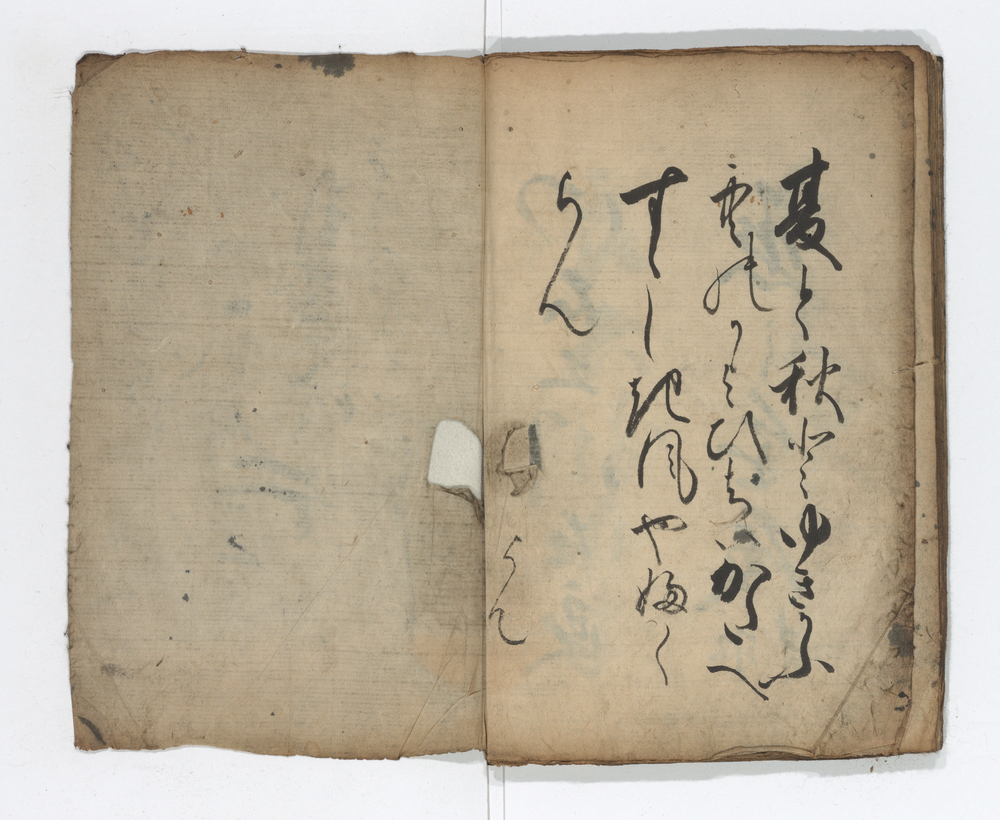 夏と秋とゆきかふ
空のかよひちはかたへ
すゝしき風やふく
らん